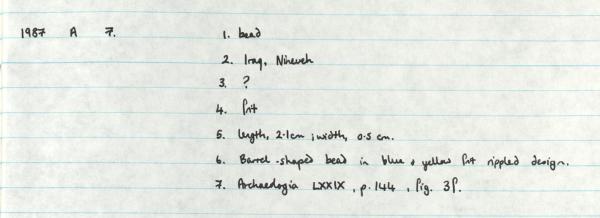 1987 A 7. 1. bead
2. Iraq, Nineveh
3. ?
4. frit
5. length, 2.1cm ; width, 0.5 cm.
6. Barrel-shaped bead in blue & yellow frit rippled design.
7. Archaeologia LXXIX, p.144, fig. 3f.